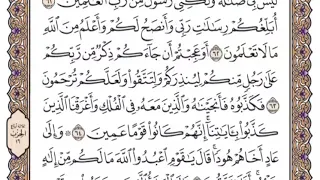 أُبَلِّغُكُمْ رِسَٰلَٰتِ رَبِّى وَأَنصَحُ لَكُمْ وَأَعْلَمُ مِنَ ٱللَّهِ
مَا لَا تَعْلَمُونَ ٦٢ أَوَعَجِبْتُمْ أَن جَآءَكُمْ ذِكْرٌ مِّن رَّبِّكُمْ
عَلَىٰ رَجُلٍ مِّنكُمْ لِيُنذِرَكُمْ وَلِتَتَّقُوا۟ وَلَعَلَّكُمْ تُرْحَمُونَ
٦٣ فَكَذَّبُوهُ فَأَنجَيْنَٰهُ وَٱلَّذِينَ مَعَهُۥ فِى ٱلْفُلْكِ وَأَغْرَقْنَا ٱلَّذِينَ
كَذَّبُوا۟ بِـَٔايَٰتِنَآ إِنَّهُمْ كَانُوا۟ قَوْمًا عَمِينَ ٦٤ وَإِلَىٰ
عَادٍ أَخَاهُمْ هُودًا قَالَ يَٰقَوْمِ ٱعْبُدُوا۟ ٱللَّهَ مَا لَكُم مِّنْ إِلَٰهٍ